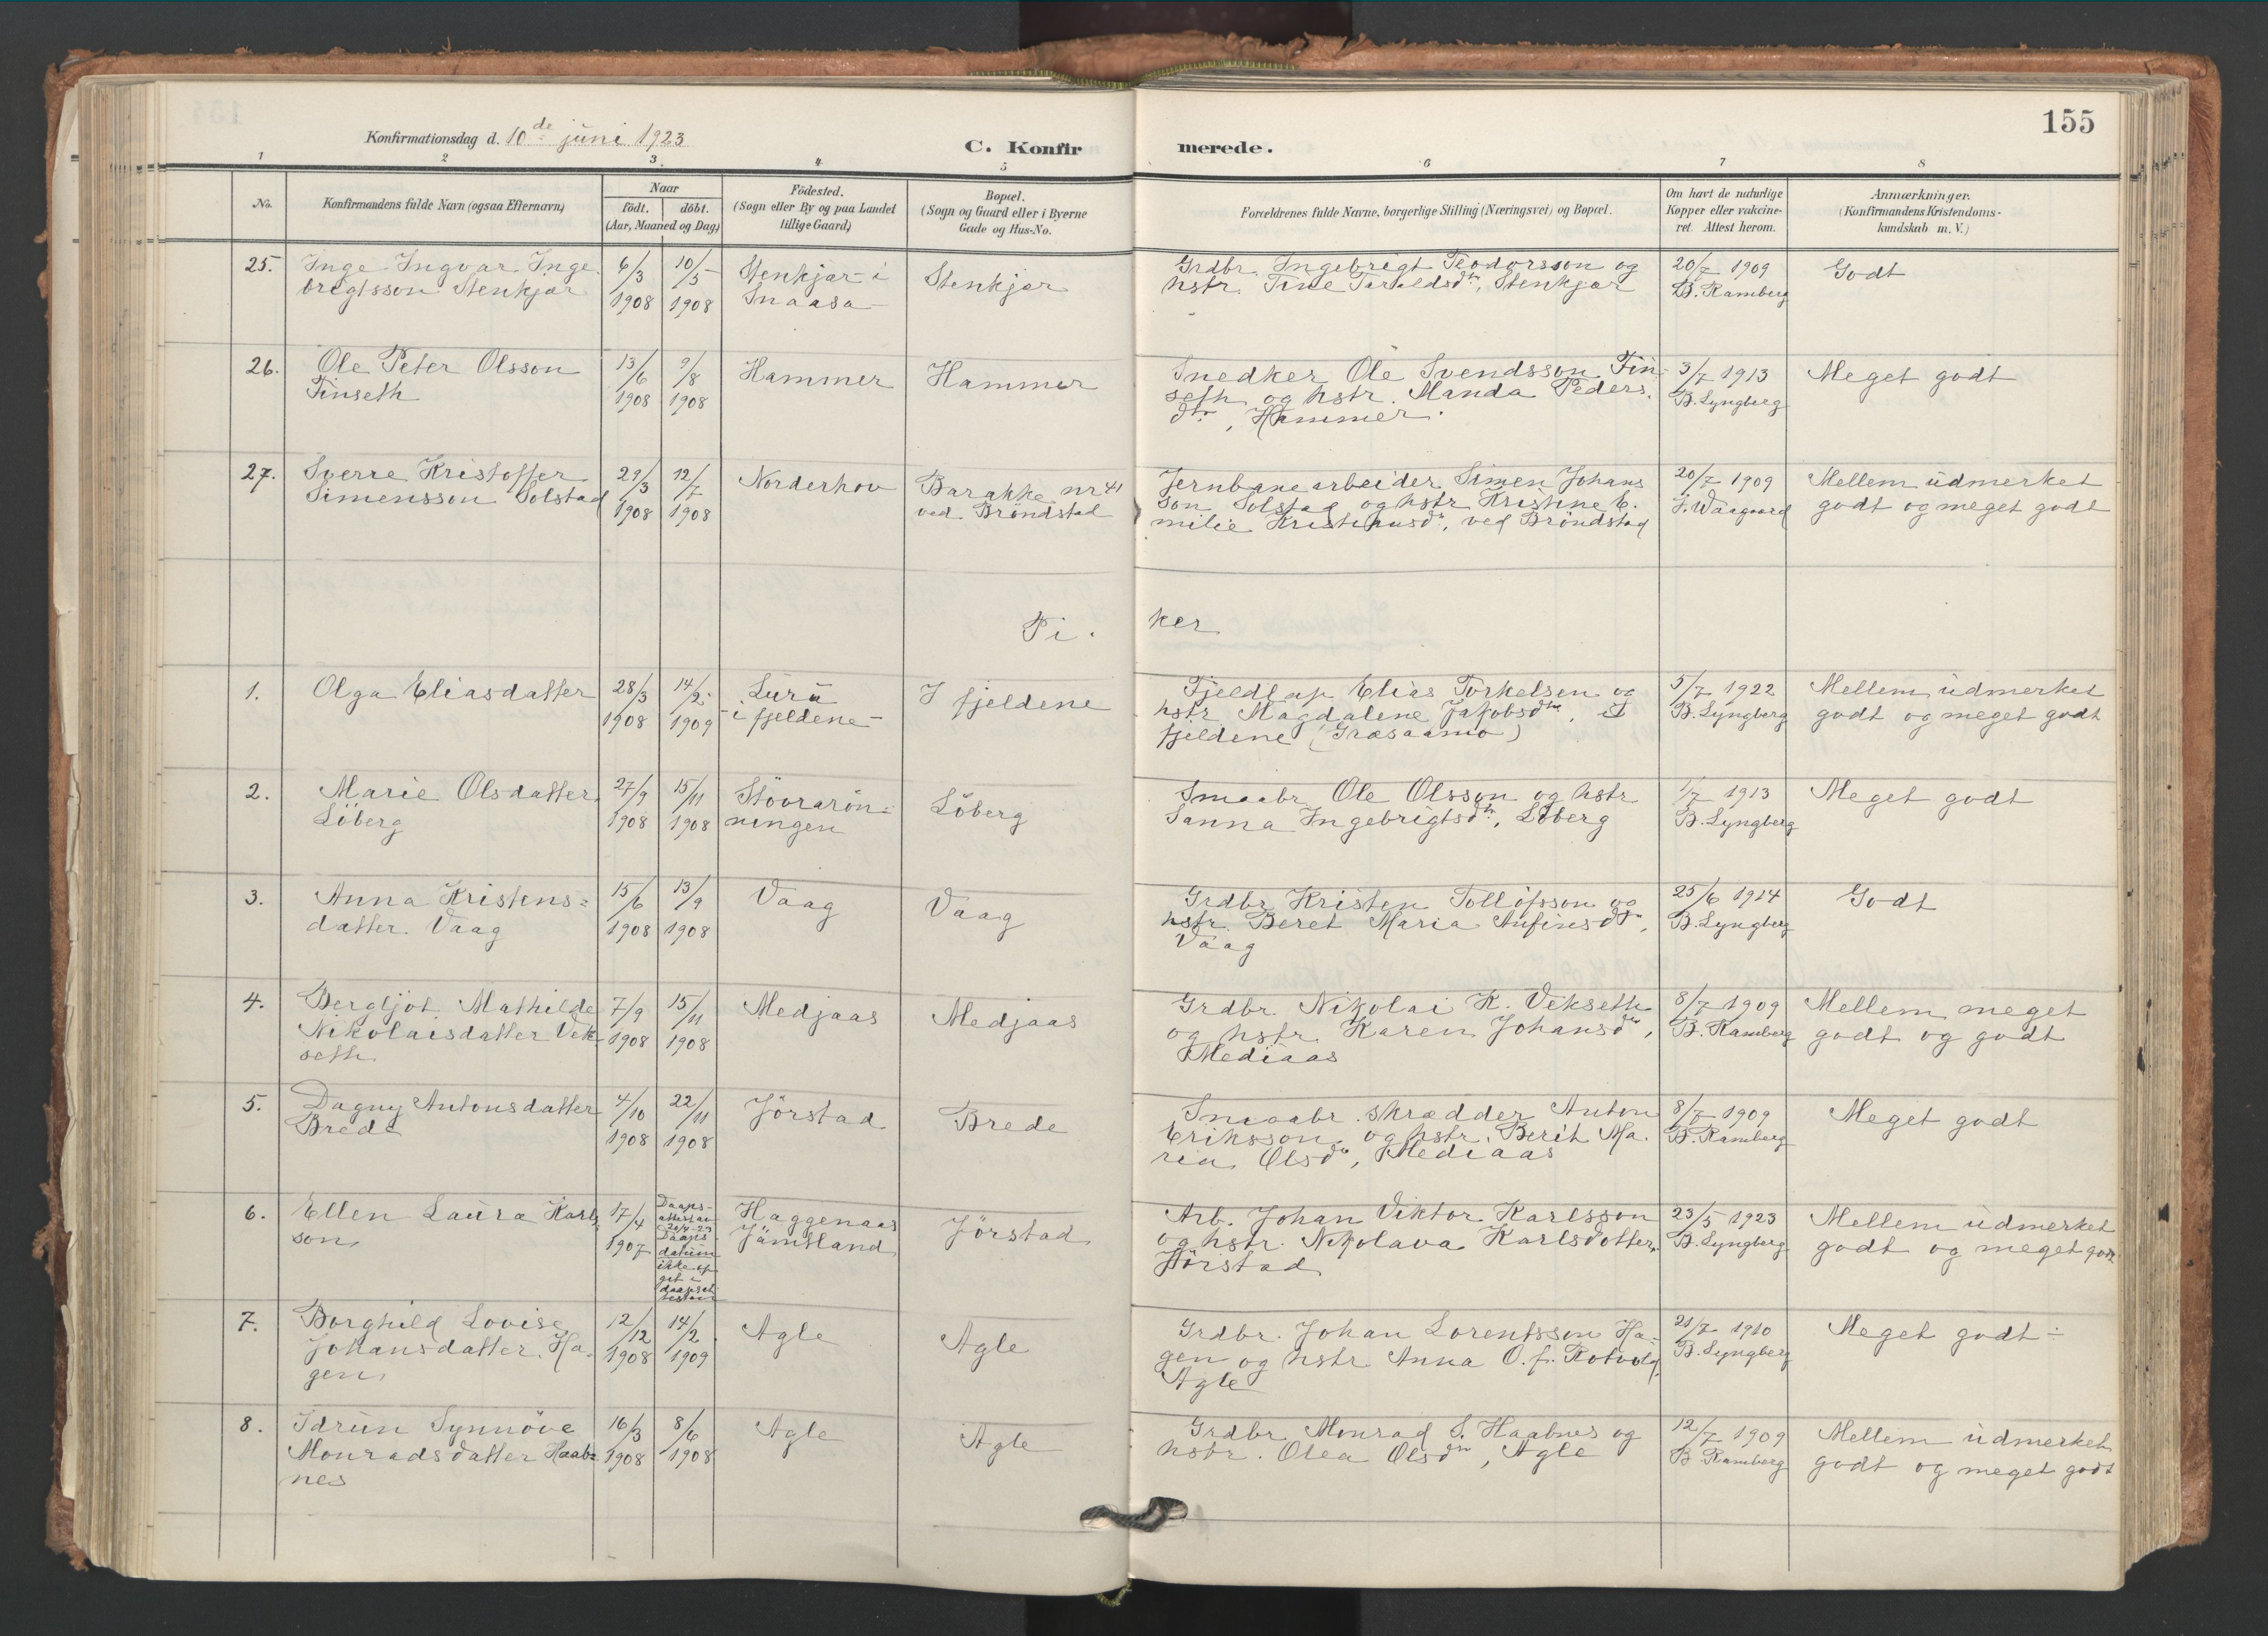 155
Konfirmationsdag d. 10de juni 1923
C. Konfir merede.
1 2 3. 4. 5 6 7 8
No.
Konfirmandens fulde Navn (ogsaa Efternavn)
Naar
födt. döbt.
(Aar, Maaned og Dag)
Födested.
(Sogn eller By og paa Landet
tillige Gaard)
Bopæl.
(Sogn og Gaard eller i Byerne
Gade og Hus-No.
Forældrenes fulde Navne, borgerlige Stilling (Næringsvei) og Bopæl.
Om havt de naturlige
Kopper eller vakcine-
ret. Attest herom.
Anmærkninger.
(Konfirmandens Kristendoms-
kundskab m. V.)
25.
Inge Ingvar Inge
brigtsson Stenkjær
6/3
1908
10/5
1908
Stenkjær i
Snaasa
Stenkjær
Grdbr. Ingebrigt Teodorsson og
hstr. Tine Taraldsdtr, Stenkjær
20/7 1909
B. Ramberg
Godt
26.
Ole Peter Olsson
Finseth
13/6
1908
9/8
1908
Hammer
Hammer
Snedker Ole Svendsson Fin
seth og hstr. Manda Peders.
dtr, Hammer.
3/7 1913
B. Lyngberg
Meget godt
27.
Sverre Kristoffer
Simensson Solstad
29/3
1908
12/7
1908
Norderhov
Barakke nr 41
ved Bröndstad
Jernbanearbeider Simen Johans
son Solstad og hstr Kristine E.
milie Kristiansdr, ved Bröndstad
20/7 1909
J. Waagaard
Mellem udmerket
godt og meget godt
Pi. ker
1.
Olga Eliasdatter
28/3
1908
14/2
1909
Luru
i fjeldene
I fjeldene
Fjeldlap Elias Torkelsen og
hstr Magdalene Jakobsdtr, I
fjeldene (Græsaamo)
5/7 1922
B. Lyngberg
Mellem udmerket
godt og meget godt
2.
Marie Olsdatter
Löberg
27/9
1908
15/11
1908
Stövrarön-
ningen
Löberg
Smaabr Ole Olsson og hstr
Sanna Ingebrigtsdtr, Löberg
1/7 1913
B. Lyngberg
Meget godt
3.
Anna Kristens=
datter. Vaag
15/6
1908
13/9
1908
Vaag
Vaag
Grdbr Kristen Tollofsson og
hstr. Beret Maria Anfinsdtr,
Vaag
25/6 1914
B. Lyngberg
Godt
4.
Bergljot Mathilde
Nikolaisdatter Vek-
seth
7/9
1908
15/11
1908
Medjaas
Medjaas
Grdbr. Nikolai K. Vekseth
og hstr Karen Johansdtr,
Mediaas
8/7 1909
B. Ramberg
Mellem meget
godt og godt
5.
Dagny Antonsdatter
Brede
4/10
1908
22/11
1908
Jörstad
Brede
Smaabr. skrædder Anton
Eriksson og hstr. Berit Ma.
ria Olsdr, Mediaas
8/7 1909
B. Ramberg
Meget godt
6.
Ellen Laura Karls
son
17/4
1907
Daaps-
attest av
20/4-23
Daaps
datum
ikke op
git i
daapsat
testen
Haggenaas
Jämtland
Jörstad
Arb. Johan Viktor Karlsson
og hstr. Nikolava Karlsdotter,
Jörstad
23/5 1923
B. Lyngberg
Mellem udmerket
godt og meget godt
7.
Borghild Lovise
Johansdatter Ha-
gen
12/12
1908
14/2
1909
Agle
Agle
Grdbr. Johan Lorentsson Ha-
gen og hstr Anna O. f. Rotvold,
Agle
21/7 1910
B. Lyngberg
Meget godt÷
8.
Idrun Synnöve
Monradsdatter Haab=
nes
16/3
1908
8/6
1908
Agle
Agle
Grdbr Monrad S. Haabnes og
hstr. Olea Olsdtr, Agle
12/7 1909
B. Ramberg
Mellem udmerket
godt og meget godt